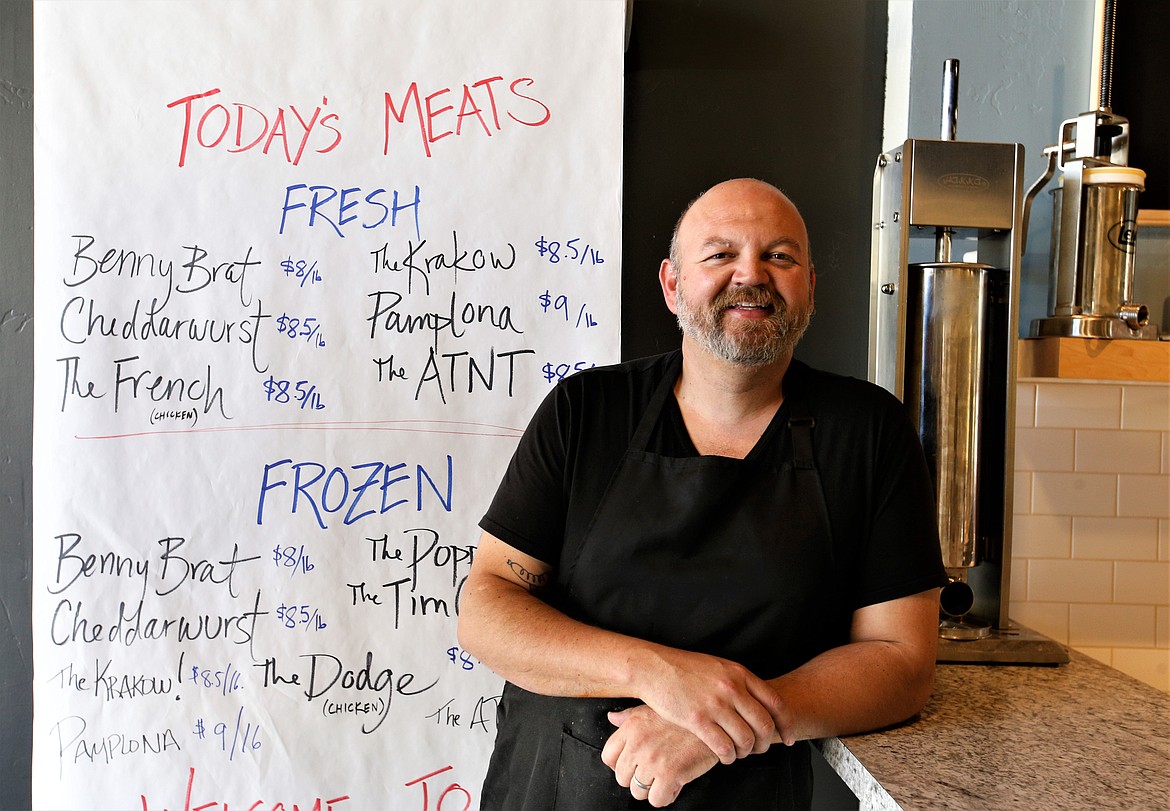 TODAY'S MEATS
FRESH
Benny Brat $8/lb
Cheddarwurst $8.5/lb
The French $8.5/lb
(CHICKEN)
The Krakow $8.5/lb
Pamplona $9/lb
The ATNT $8.5/
FROZEN
Benny Brat $8/lb
Cheddarwurst $8.5/lb
The KRAKOW! $8.5/lb.
PAMPLONA $9/lb
The Popp
The Tim
The Dodge $8.
(CHICKEN)
The AT
WELCOME TO